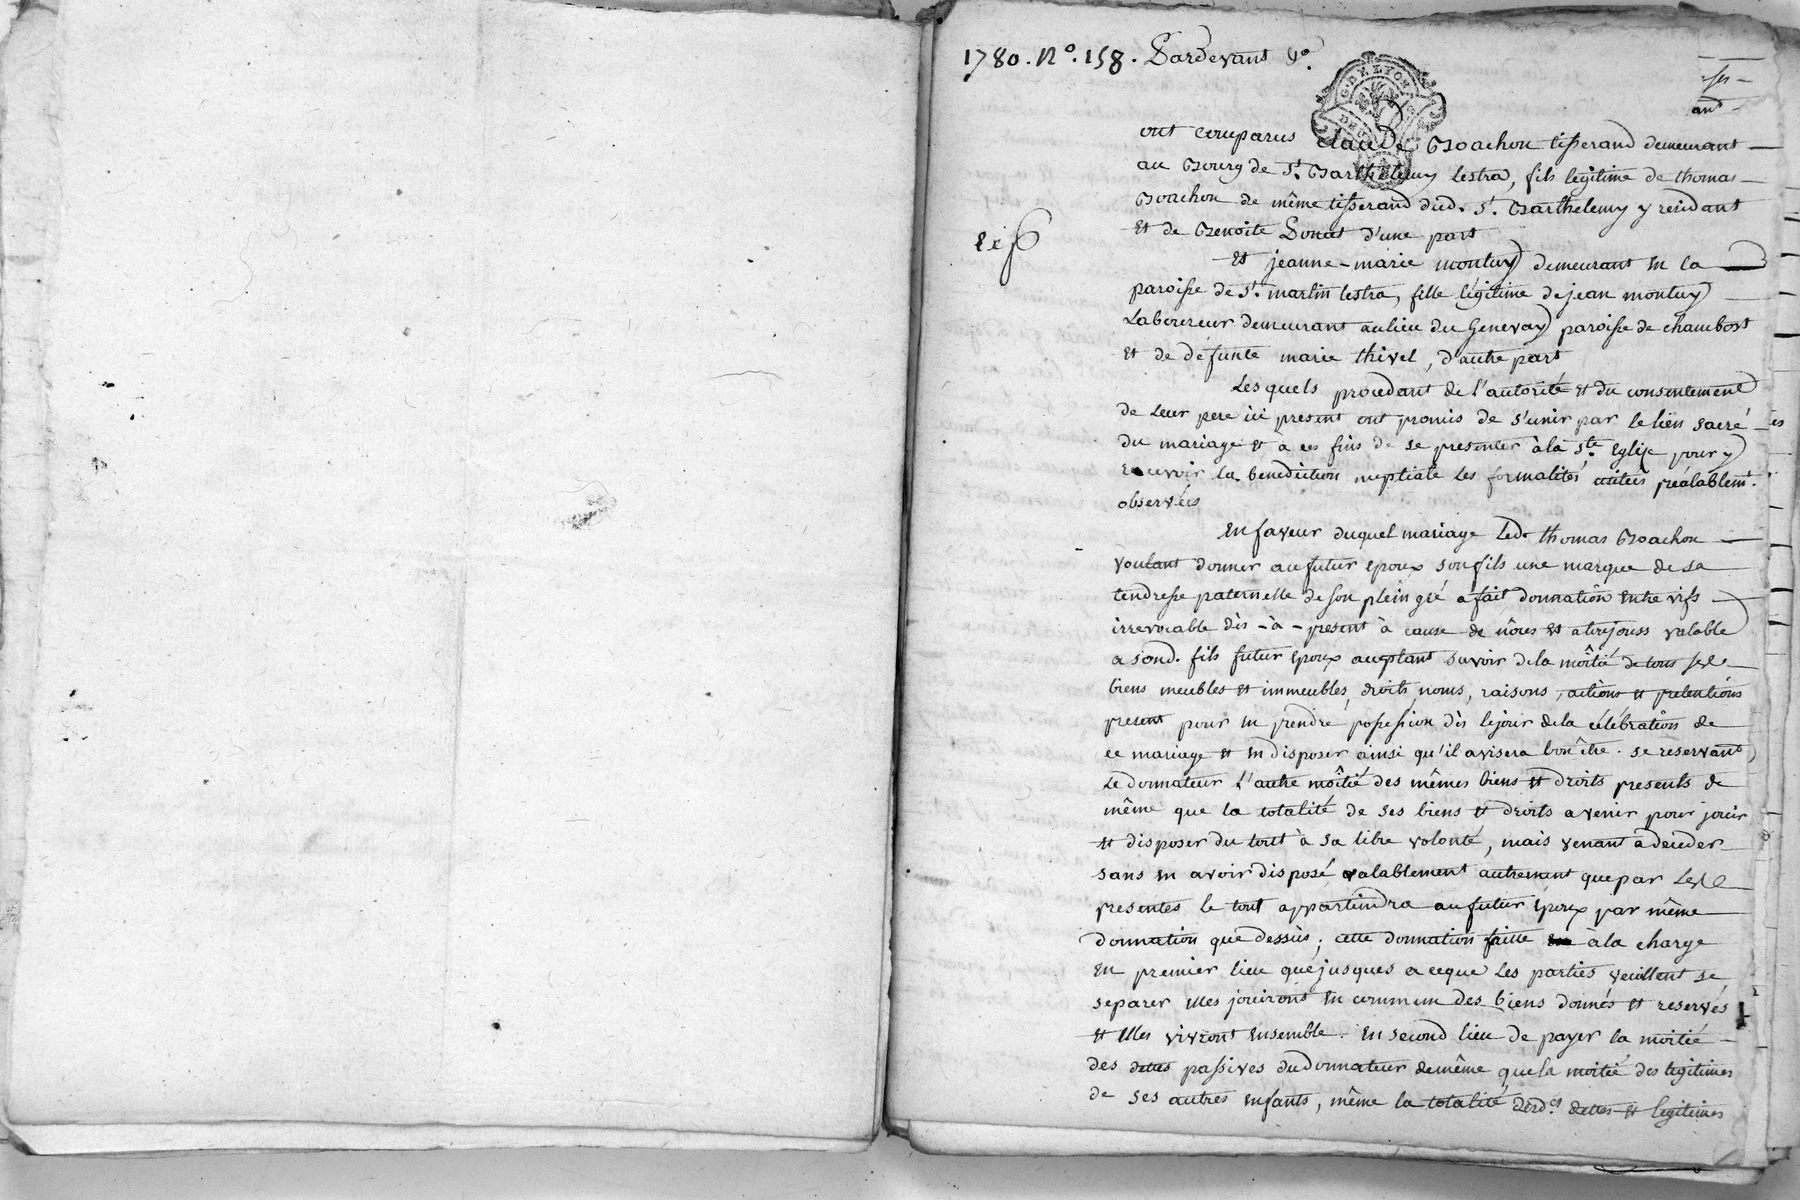 1780. N°. 158. Pardevant &°.
G. DE LYON
ant
ont comparus Claude Coachon tisserand demeurant
au Bourg de St. Barthelemy Lestra, fils légitime de thomas
Coachon de même tisserand dud. St. Barthelemy y residant
Et de Benoite Donat d'une part
Exp
Et jeanne-marie montuy demeurant En la
paroisse de St. martin Lestra, fille légitime de jean montuy
Laboureur demeurant au lieu du Genevay paroisse de chambost
Et de défunte marie thivel, d'autre part
Lesquels procedant de l'autorité et du consentement
de Leur pere ici present ont promis de s'unir par le lien sacré
du mariage Et à ces fins de se presenter à la Ste. Eglise pour y
recevoir la benediction nuptiale Les formalités preálablemt.
observées
En faveur duquel mariage Led. thomas Coachon
voulant donner au futur Epoux son fils une marque de sa
tendresse paternelle de son plein gré a fait donnation Entre vifs
irrevocable dès-à-present à cause de nôces Et a toujours valable
a sond. fils futur Epoux acceptant savoir de la môitié de tous ses
biens meubles Et immeubles, droits noms, raisons, actions Et pretentions
present pour En prendre possession dès le jour de la célébration de
ce mariage Et En disposer ainsi qu'il avisera bon être. se reservant
Le donnateur L'autre môitié des mêmes biens Et droits presents de
même que la totalité de ses biens Et droits avenir pour jouir
Et disposer du tout à sa libre volonté, mais venant a deceder
sans En avoir disposé valablement autrement que par Les
presentes le tout appartiendra au futur Epoux par même
donnation que dessus; cette donnation faitte à la charge
En premier lieu que jusques a ceque Les parties veuillent se
separer Elles jouiront En commun des biens donnés Et reservés
Et Elles vivront Ensemble. En second lieu de payer la moitié
des dettes passives du donnateur de même que la moitié des legitimes
de ses autres Enfants, même la totalité desd.es dettes Et legitimes